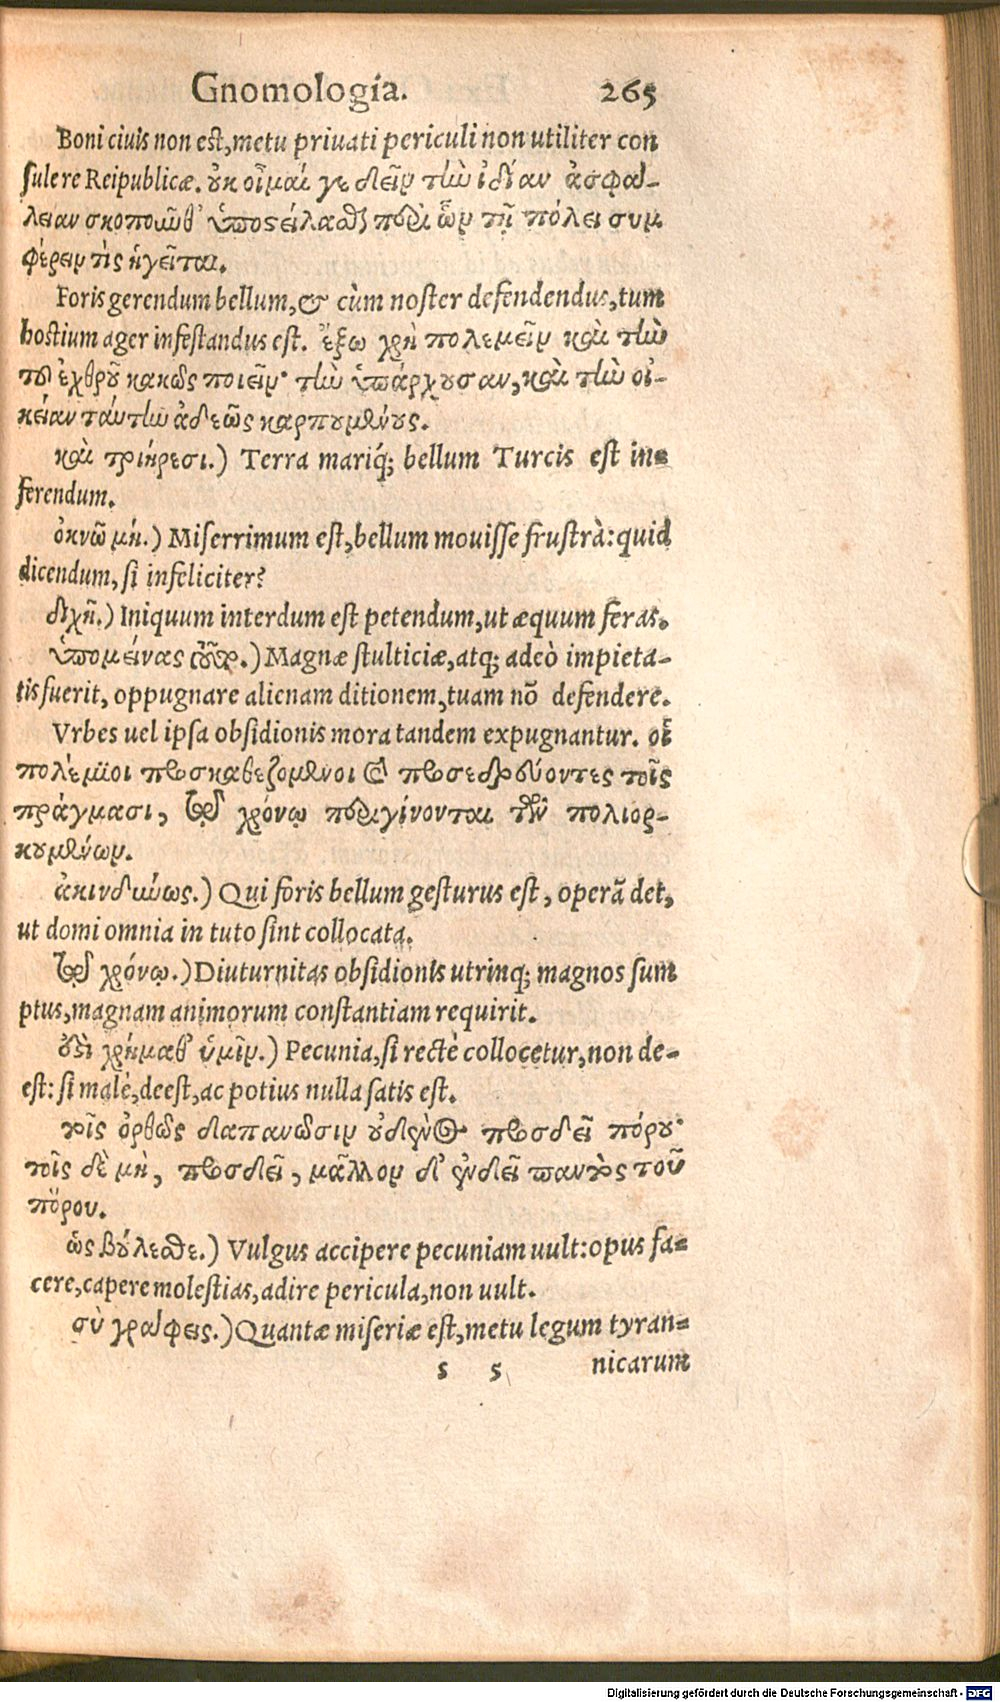 Gnomologia. 265
Boni ciuis non est, metu priuati periculi non utiliter con
sulere Reipublicæ. οὐκ οἶμαί γε δεῖν τὴν ἰδίαν ἀσφα-
λειαν σκοποῦνθ' ὑποστείλασθαι περὶ ὧν τῇ πόλει συμ
φέρειν τὶς ἡγεῖται.
Foris gerendum bellum, & cùm noster defendendus, tum
hostium ager infestandus est. ἔξω χρὴ πολεμεῖν καὶ τὴν
τοῦ ἐχθροῦ κακῶς ποιεῖν· τὴν ὑπάρχουσαν, καὶ τὴν οἰ-
κείαν ταύτην ἀδεῶς καρπουμένους.
καὶ τριήρεσι.) Terra mariq́; bellum Turcis est in-
ferendum.
ὀκνῶ μή.) Miserrimum est, bellum mouisse frustrà: quid
dicendum, si infeliciter?
διχῇ.) Iniquum interdum est petendum, ut æquum feras.
ὑπομείνας οὖν.) Magnæ stulticiæ, atq; adeò impieta-
tis fuerit, oppugnare alienam ditionem, tuam nõ defendere.
Vrbes uel ipsa obsidionis mora tandem expugnantur. οἱ
πολέμιοι προσκαθεζομενοι καὶ προσεδρεύοντες τοῖς
πράγμασι, τῷ χρόνῳ περιγίνονται τῶν πολιορ-
κουμένων.
ἀκινδύνως.) Qui foris bellum gesturus est, operã det,
ut domi omnia in tuto sint collocata.
τῷ χρόνῳ.) Diuturnitas obsidionis utrinq; magnos sum
ptus, magnam animorum constantiam requirit.
ἔστι χρήμαθ' ὑμῖν.) Pecunia, si rectè collocetur, non de-
est: si malè, deest, ac potius nulla satis est.
τοῖς ὀρθῶς δαπανῶσιν οὐδενὸς προσδεῖ πόρου·
τοῖς δὲ μὴ, προσδεῖ, μᾶλλον δ' ἐνδεῖ παντὸς τοῦ
πόρου.
ὡς βούλεσθε.) Vulgus accipere pecuniam uult: opus fa-
cere, capere molestias, adire pericula, non uult.
σὺ γράφεις.) Quantæ miseriæ est, metu legum tyran-
s 5 nicarum
Digitalisierung gefördert durch die Deutsche Forschungsgemeinschaft - DFG